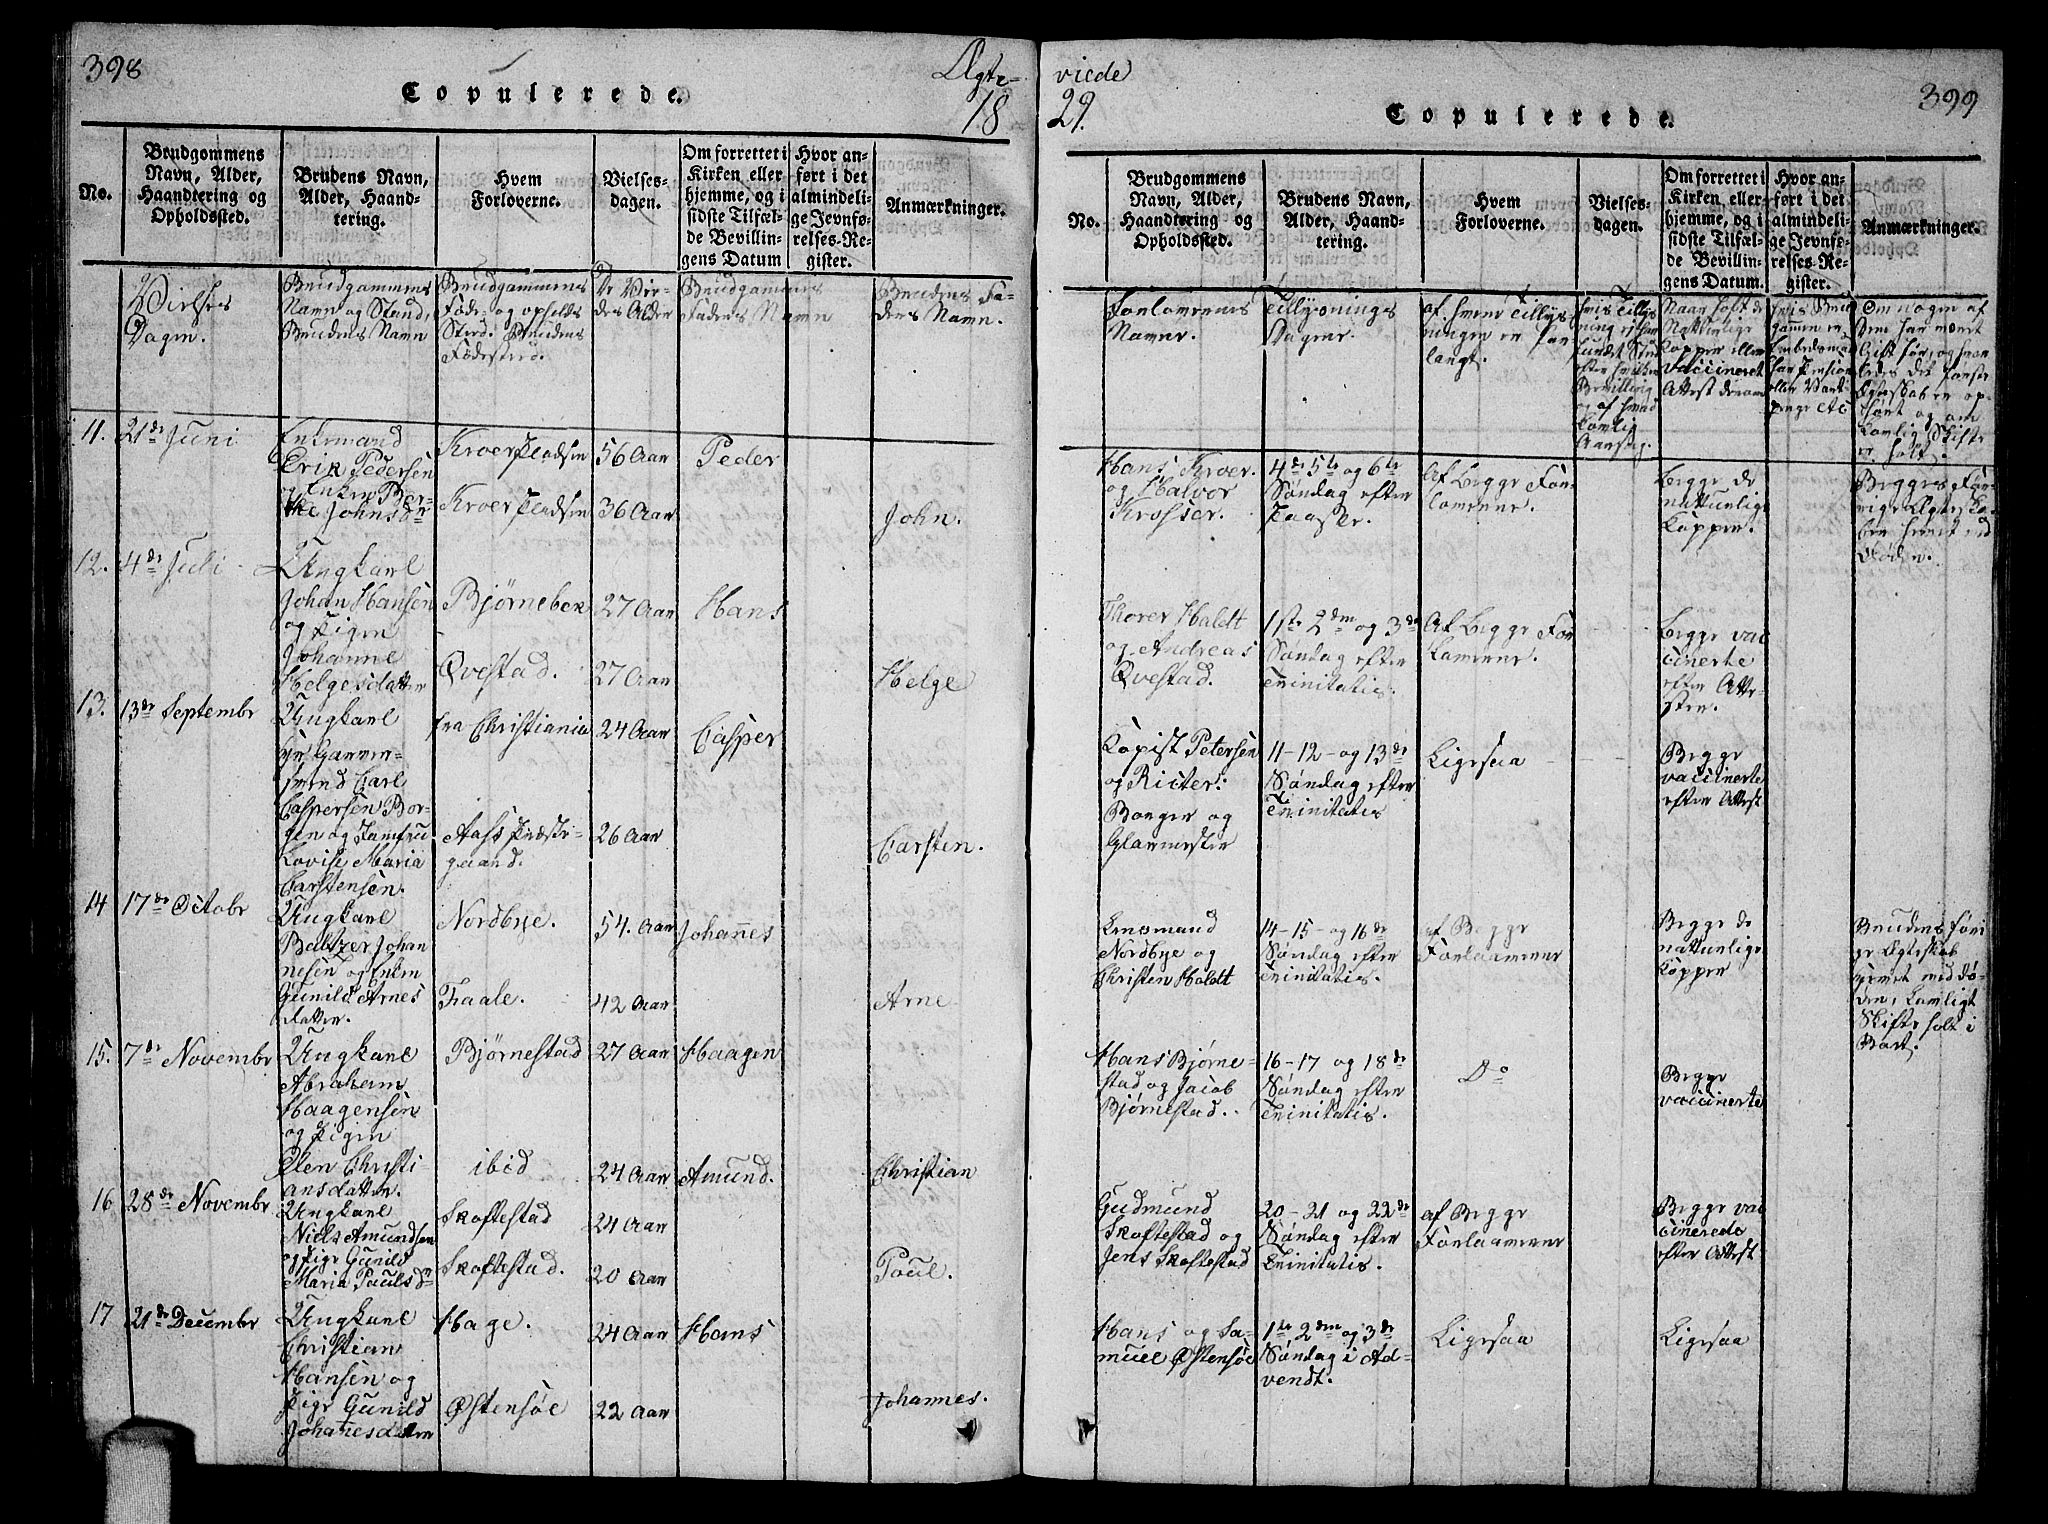 398
Copulerede.
Ægte-
18
No.
Brudgommens
Navn, Alder,
Haandtering og
Opholdssted.
Brudens Navn,
Alder, Haand-
tering.
Hvem
Forloverne.
Vielses-
dagen.
Om forrettet i
Kirken eller
hjemme, og i
sidste Tilfæl-
de Bevillin-
gens Datum
Hvor an-
ført i det
almindeli-
ge Jevnfø-
relses-Re-
gister.
Anmærkninger.
Vielses
Dagen.
Brudgommens
Navn og Stand,
Brudens Navn
Brudgommens
Føde- og opholds
Sted. Brudens
Fødested.
De Vie-
des Alder
Brudgommens
Faders Navn
Brudens Fa-
ders Navn.
11. 21de Juni
Enkemand
Erik Pedersen
og Enken Ber-
the Johnsdr
Kroer Pladsen
Kroer Pladsen
56 Aar
36 Aar
Peder
John.
12. 4de Juli
Ungkarl
Johan Hansen
og Pigen
Johanne
Helgesdatter
Bjørnebek
Qvestad.
27 Aar
27 Aar
Hans
Helge
13. 13de Septembr
Ungkarl
Carl
Caspersen Bor-
gen og Jomfru
Lovise Maria
Carstensen.
fra Christiania
Aass Præste-
gaard.
24 Aar
26 Aar
Casper
Carsten.
14 17de Octobr
Ungkarl
Baltzer Johan
nesen og Enken
Gunild Arnes
datter.
Nordbye.
Faale.
54. Aar
42 Aar
Johannes
Arne
15. 7de Novembr
Ungkarl
Abraham
Haagensen
og Pigen
Olen Christi-
ansdatter.
Bjørnestad
ibid
27 Aar
24 Aar
Haagen
Amund.
Christian
16 28de Novembr
Ungkarl
Niels Amundsen
og Pige Gunild
Maria Paulsdr
Skoftestad
Skoftestad.
24 Aar
20 Aar
Poul.
17 21de Decembr
Ungkarl
Christian
Hansen og
Pige Gunild
Johanesdatter
Hage.
Østensøe
24 Aar
22 Aar
Hans
Johannes.
viede
29.
Copulerede.
399
No.
Brudgommens
Navn, Alder,
Haandtering og
Opholdssted.
Brudens Navn,
Alder, Haand-
tering.
Hvem
Forloverne.
Vielses-
dagen.
Om forrettet i
Kirken eller
hjemme, og i
sidste Tilfæl-
de Bevillin-
gens Datum.
Hvor an-
ført i det
almindeli-
ge Jevnfø-
relses-Re-
gister.
Anmærkninger.
Forlovernes
Navne.
Tillysnings
Dagene.
af hvem Tillys
ningen er for
langt.
hvis Tillys
ning ej har
fundet Sted
efter hvilken
Bevilling
og af hvad
lovlig
Aarsag.
Naar havt de
Naturlige
Kopper eller
vaccineret
Attest derom
hvis Brud
gommen er
Embedsmand
har Pension
eller Vart-
penge etc
Om nogen af
dem har været
Gift før, og hvor
ledes det første
Egteskab er op-
hørt og om
lovlig Skifte
er holt.
Hans Kroer.
og Halvor
Krosser.
4de 5te og 6te
Søndag efter
Paaske.
Af begge For-
loverne.
Begge de
natturlige
Kopper.
Begges For-
rige Ægteska-
ber hævet ved
Døden.
Thorer Holdt
og Andreas
Qvestad.
1ste 2den og 3de
Søndag efter
Trinitatis.
Af begge For
loverne.
Begge vac
cinerte
efter Atte-
ster.
Kopist Petersen
og Ricter:
Borger og
Glarmester
11-12- og 13de
Søndag efter
Trinitatis
Ligesaa
Begge
vaccinerte
efter Attest
Lensmand
Nordbye og
Christen Holdt
14-15- og 16de
Søndag efter
Trinitatis.
af Begge
Forloverne
Begge de
nattunlige
Kopper
Brudens Fori
ge Egteskab
hævet med Dø-
den, lovligt
Skifte holt i
Boet.
Hans Bjørne-
stad og Jacob
Bjørnestad.
16-17 og 18de
Søndag efter
Trinitatis.
Do
Begge
vaccinerte
Gudmund
Skoftestad og
Jens Skoftestad
20-21 og 22de
Søndag efter
Trinitatis.
af Begge
Forloverne
Begge vac
cinerede
efter Attest
Hans og Sa-
muel Østensøe
1ste 2den og 3de
Søndag i Ad-
vendt.
Ligesaa
Ligesaa